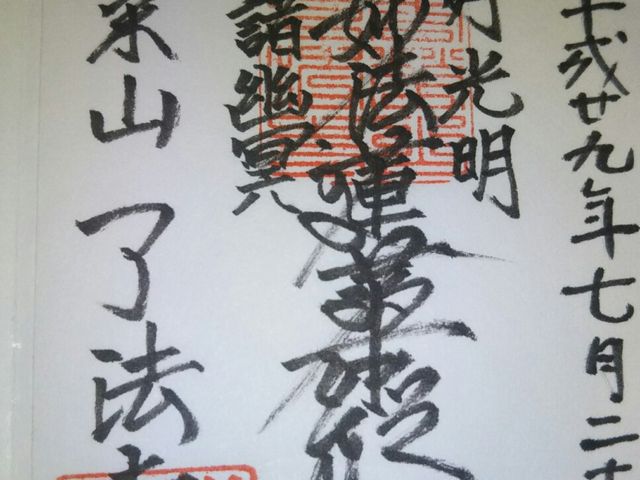 成廿九年七月二十
月光明
妙法蓮華経
諸幽冥
栄山了法寺